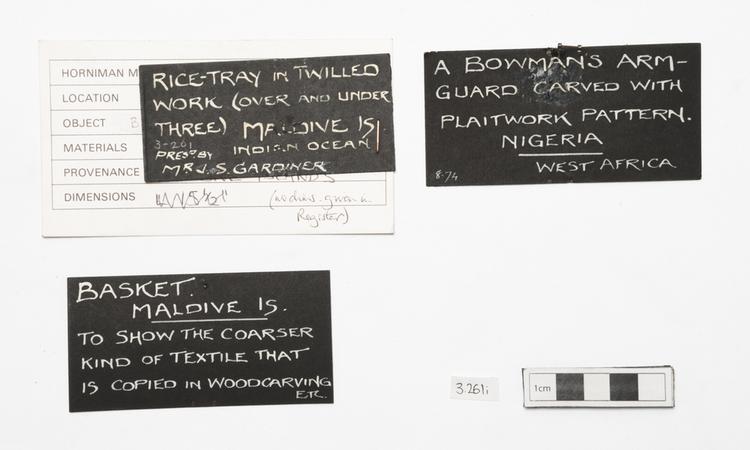 HORNIMAN M
LOCATION
OBJECT B
MATERIALS
PROVENANCE ISLANDS
DIMENSIONS
(no dims. given in
Register)
RICE-TRAY IN TWILLED
WORK (OVER AND UNDER
THREE) MALDIVE IS
3-261 INDIAN OCEAN
PRESD BY
MR J. S. GARDINER
A BOWMAN'S ARM-
GUARD CARVED WITH
PLAITWORK PATTERN.
NIGERIA
WEST AFRICA
8.74
BASKET.
MALDIVE IS.
TO SHOW THE COARSER
KIND OF TEXTILE THAT
IS COPIED IN WOODCARVING
ETC.
3.261i
1cm